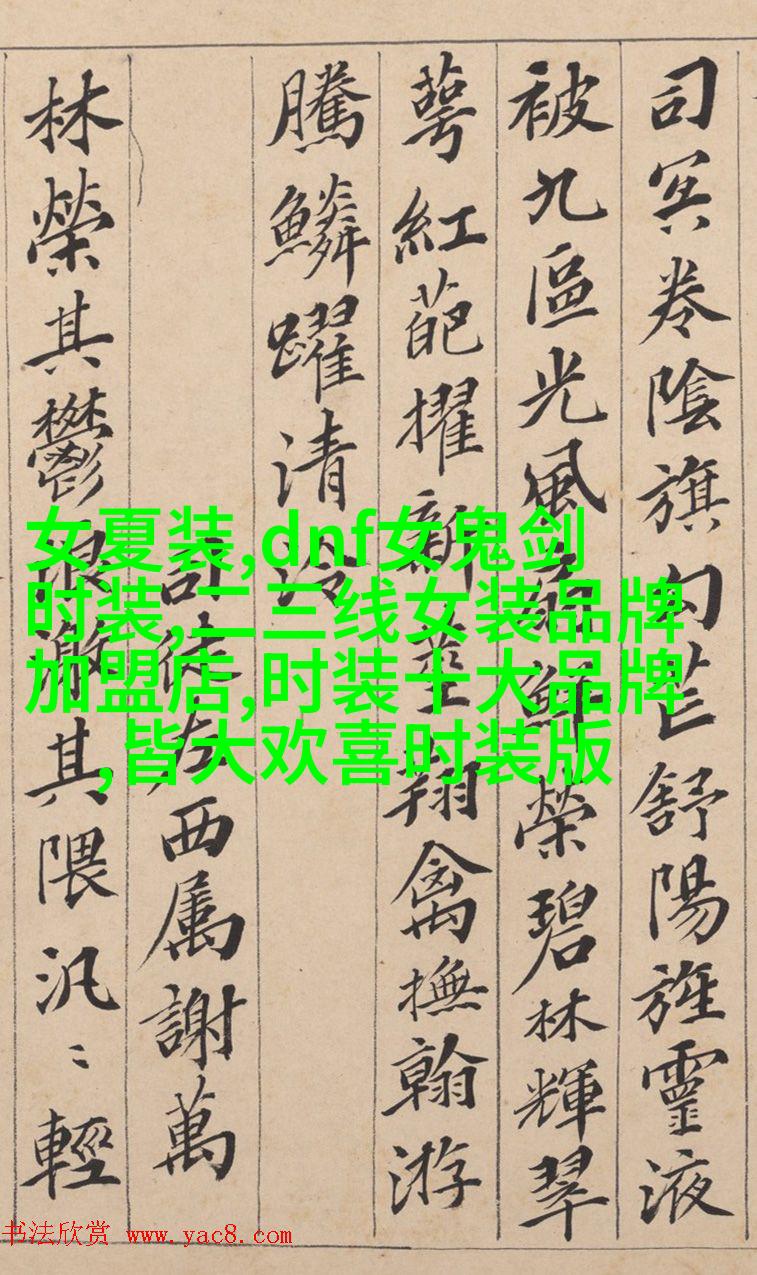 司冥卷陰旗勾芒舒陽旌靈液
被九區光風扇鮮榮碧林輝翠
萼紅葩擢新莖翔禽撫翰游
騰鱗躍清泠
司徒左西属謝萬
林榮其鬱浪激其隈汎〻輕
女夏装,dnf女鬼剑
时装,二三线女装品牌
加盟店,时装十大品牌
,皆大欢喜时装版
书法欣赏 www.yac8.com